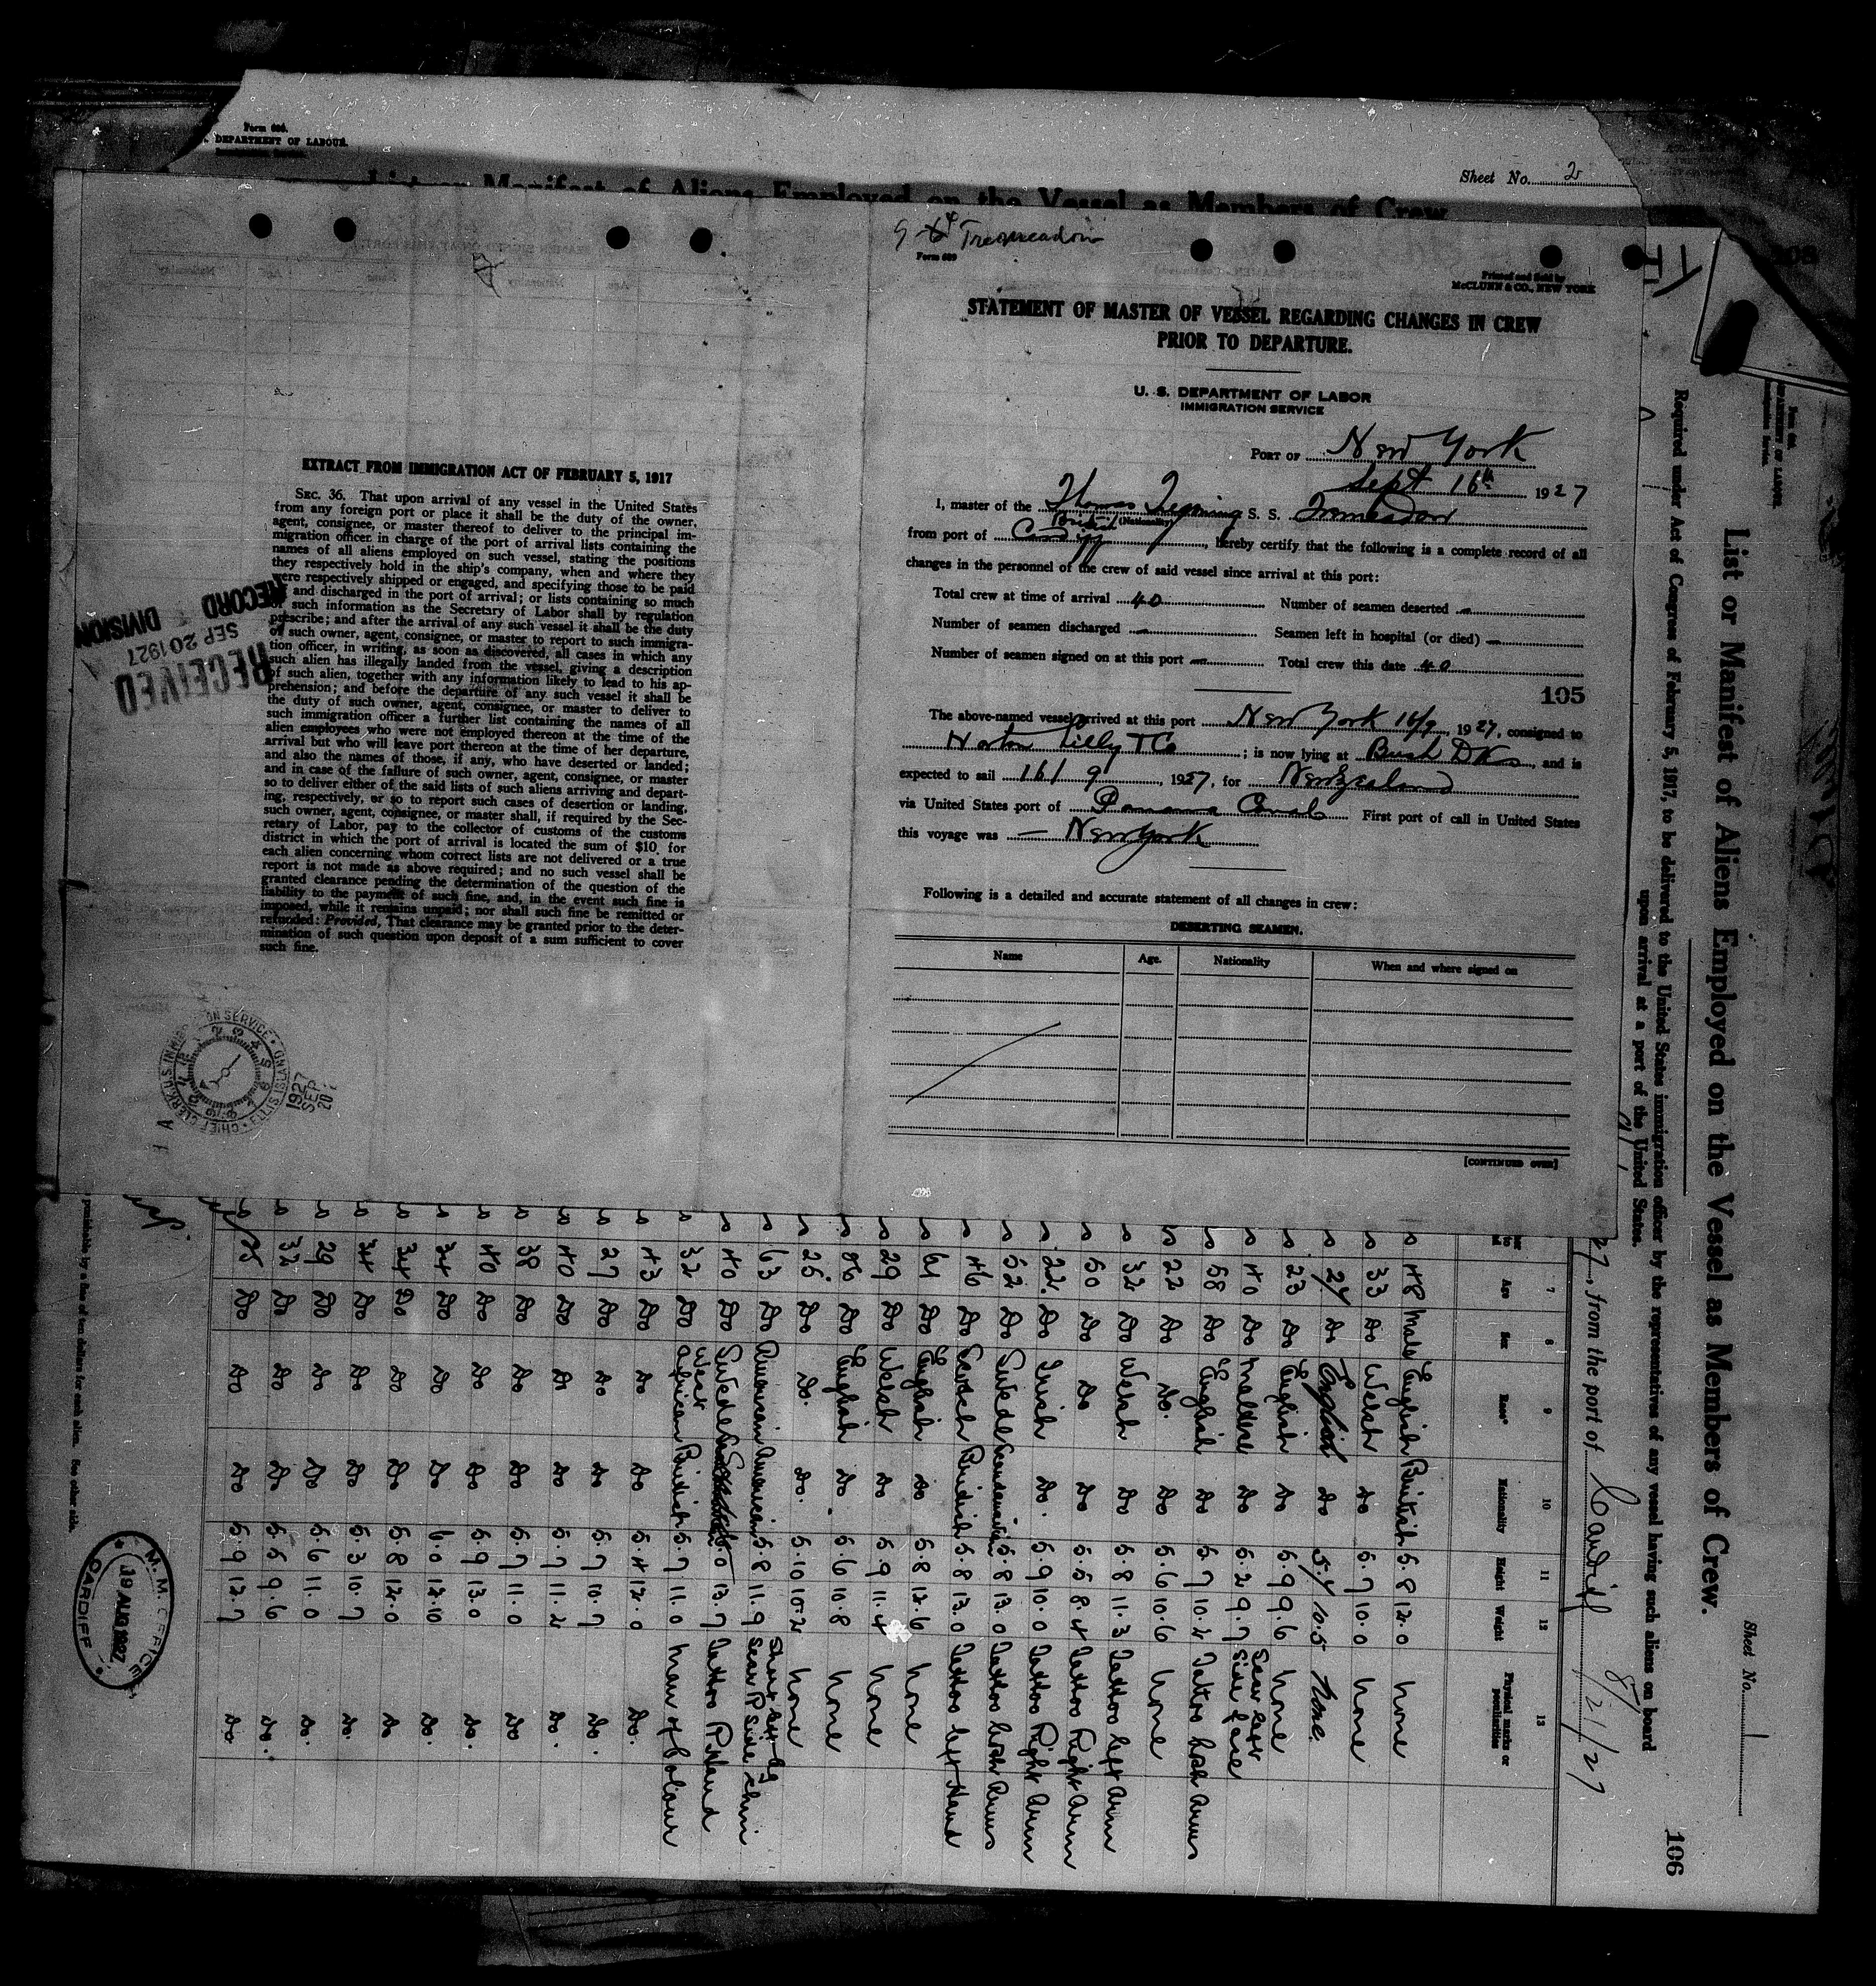 Form 680.
DEPARTMENT OF LABOUR.
Sheet No. 2
List or Manifest of Aliens Employed on the Vessel as Members of Crew
EXTRACT FROM IMMIGRATION ACT OF FEBRUARY 5, 1917
SEC. 36. That upon arrival of any vessel in the United States
from any foreign port or place it shall be the duty of the owner,
agent, consignee, or master thereof to deliver to the principal im-
migration officer in charge of the port of arrival lists containing the
names of all aliens employed on such vessel, stating the positions
they respectively hold in the ship's company, when and where they
were respectively shipped or engaged, and specifying those to be paid
off and discharged in the port of arrival; or lists containing so much
of such information as the Secretary of Labor shall by regulation
prescribe; and after the arrival of any such vessel it shall be the duty
of such owner, agent, consignee, or master to report to such immigra-
tion officer, in writing, as soon as discovered, all cases in which any
such alien has illegally landed from the vessel, giving a description
of such alien, together with any information likely to lead to his ap-
prehension; and before the departure of any such vessel it shall be
the duty of such owner, agent, consignee, or master to deliver to
such immigration officer a further list containing the names of all
alien employees who were not employed thereon at the time of the
arrival but who will leave port thereon at the time of her departure,
and also the names of those, if any, who have deserted or landed;
and in case of the failure of such owner, agent, consignee, or master
so to deliver either of the said lists of such aliens arriving and depart-
ing, respectively, or so to report such cases of desertion or landing,
such owner, agent, consignee, or master shall, if required by the Sec-
retary of Labor, pay to the collector of customs of the customs
district in which the port of arrival is located the sum of $10 for
each alien concerning whom correct lists are not delivered or a true
report is not made as above required; and no such vessel shall be
granted clearance pending the determination of the question of the
liability to the payment of such fine, and, in the event such fine is
imposed, while it remains unpaid; nor shall such fine be remitted or
refunded: Provided, That clearance may be granted prior to the deter-
mination of such question upon deposit of a sum sufficient to cover
such fine.
RECEIVED
SEP 20 1927
RECORD DIVISION
CHIEF CLERK U.S. IMMIGRATION SERVICE ELLIS ISLAND
1927
SEP
20
Form 689
Printed and Sold by
McCLUNN & CO., NEW YORK
STATEMENT OF MASTER OF VESSEL REGARDING CHANGES IN CREW
PRIOR TO DEPARTURE.
U. S. DEPARTMENT OF LABOR
IMMIGRATION SERVICE
PORT OF New York
Sept 16th 1927
I, master of the Thomas S. S. Tremeadow
British (Nationality)
from port of Cardiff, hereby certify that the following is a complete record of all
changes in the personnel of the crew of said vessel since arrival at this port:
Total crew at time of arrival 40 Number of seamen deserted —
Number of seamen discharged — Seamen left in hospital (or died) —
Number of seamen signed on at this port — Total crew this date 40
105
The above-named vessel arrived at this port New York 16/9 1927, consigned to
Norton Lilly & Co; is now lying at Bush Dks, and is
expected to sail 16/9 1927, for New Zealand
via United States port of Panama Canal First port of call in United States
this voyage was — New York
Following is a detailed and accurate statement of all changes in crew:
DESERTING SEAMEN.
Name Age. Nationality When and where signed on
[CONTINUED OVER]
List or Manifest of Aliens Employed on the Vessel as Members of Crew.
Required under Act of Congress of February 5, 1917, to be delivered to the United States immigration officer by the representatives of any vessel having such aliens on board
upon arrival at a port of the United States.
Sheet No. 1
106
27, from the port of Cardiff 8/21/27
7 8 9 10 11 12 13
Age Sex Race* Nationality Height Weight Physical marks or peculiarities
48 Male English British 5.8 12.0 None
33 Do Welsh Do 5.7 10.0 None
24 Do English Do 5.4 10.5 None
23 Do English Do 5.9 9.6 None
40 Do Maltese Do 5.2 9.7 Scar left side face
58 Do English Do 5.7 10.2 Tattoo both arms
22 Do Do. Do 5.6 10.6 None
32 Do Welsh Do 5.8 11.3 Tattoo left arm
50 Do Do Do 5.5 8.4 Tattoo Right arm
22 Do Irish Do. 5.9 10.0 Tattoo Right arm
52 Do Swede Scandanavian 5.8 13.0 Tattoo both arms
46 Do Scotch British 5.8 13.0 Tattoo left Hand
61 Do English Do 5.8 12.6 None
29 Do Welsh Do 5.9 11.4 None
36 Do English Do 5.6 10.8 None
25 Do Do. Do. 5.10 10.2 None
63 Do American American 5.8 11.9 Scar R Side chin
40 Do Swede 13.7 Tattoo R Hand
32 Do West African British 5.7 11.0 Man of Colour
43 Do Do Do 5.4 12.0 Do.
27 Do Do Do 5.7 10.7 Do.
40 Do Do Do 5.7 11.2 Do.
38 Do Do Do 5.7 11.0 Do
40 Do Do Do 5.9 13.0 Do.
34 Do Do Do 6.0 12.10 Do.
34 Do Do Do 5.8 12.0 Do
34 Do Do Do 5.3 10.7 Do.
29 Do Do Do 5.6 11.0 Do.
32 Do Do Do 5.5 9.6 Do.
Do Do Do 5.9 12.7 Do.
M. M. OFFICE
19 AUG 1927
CARDIFF